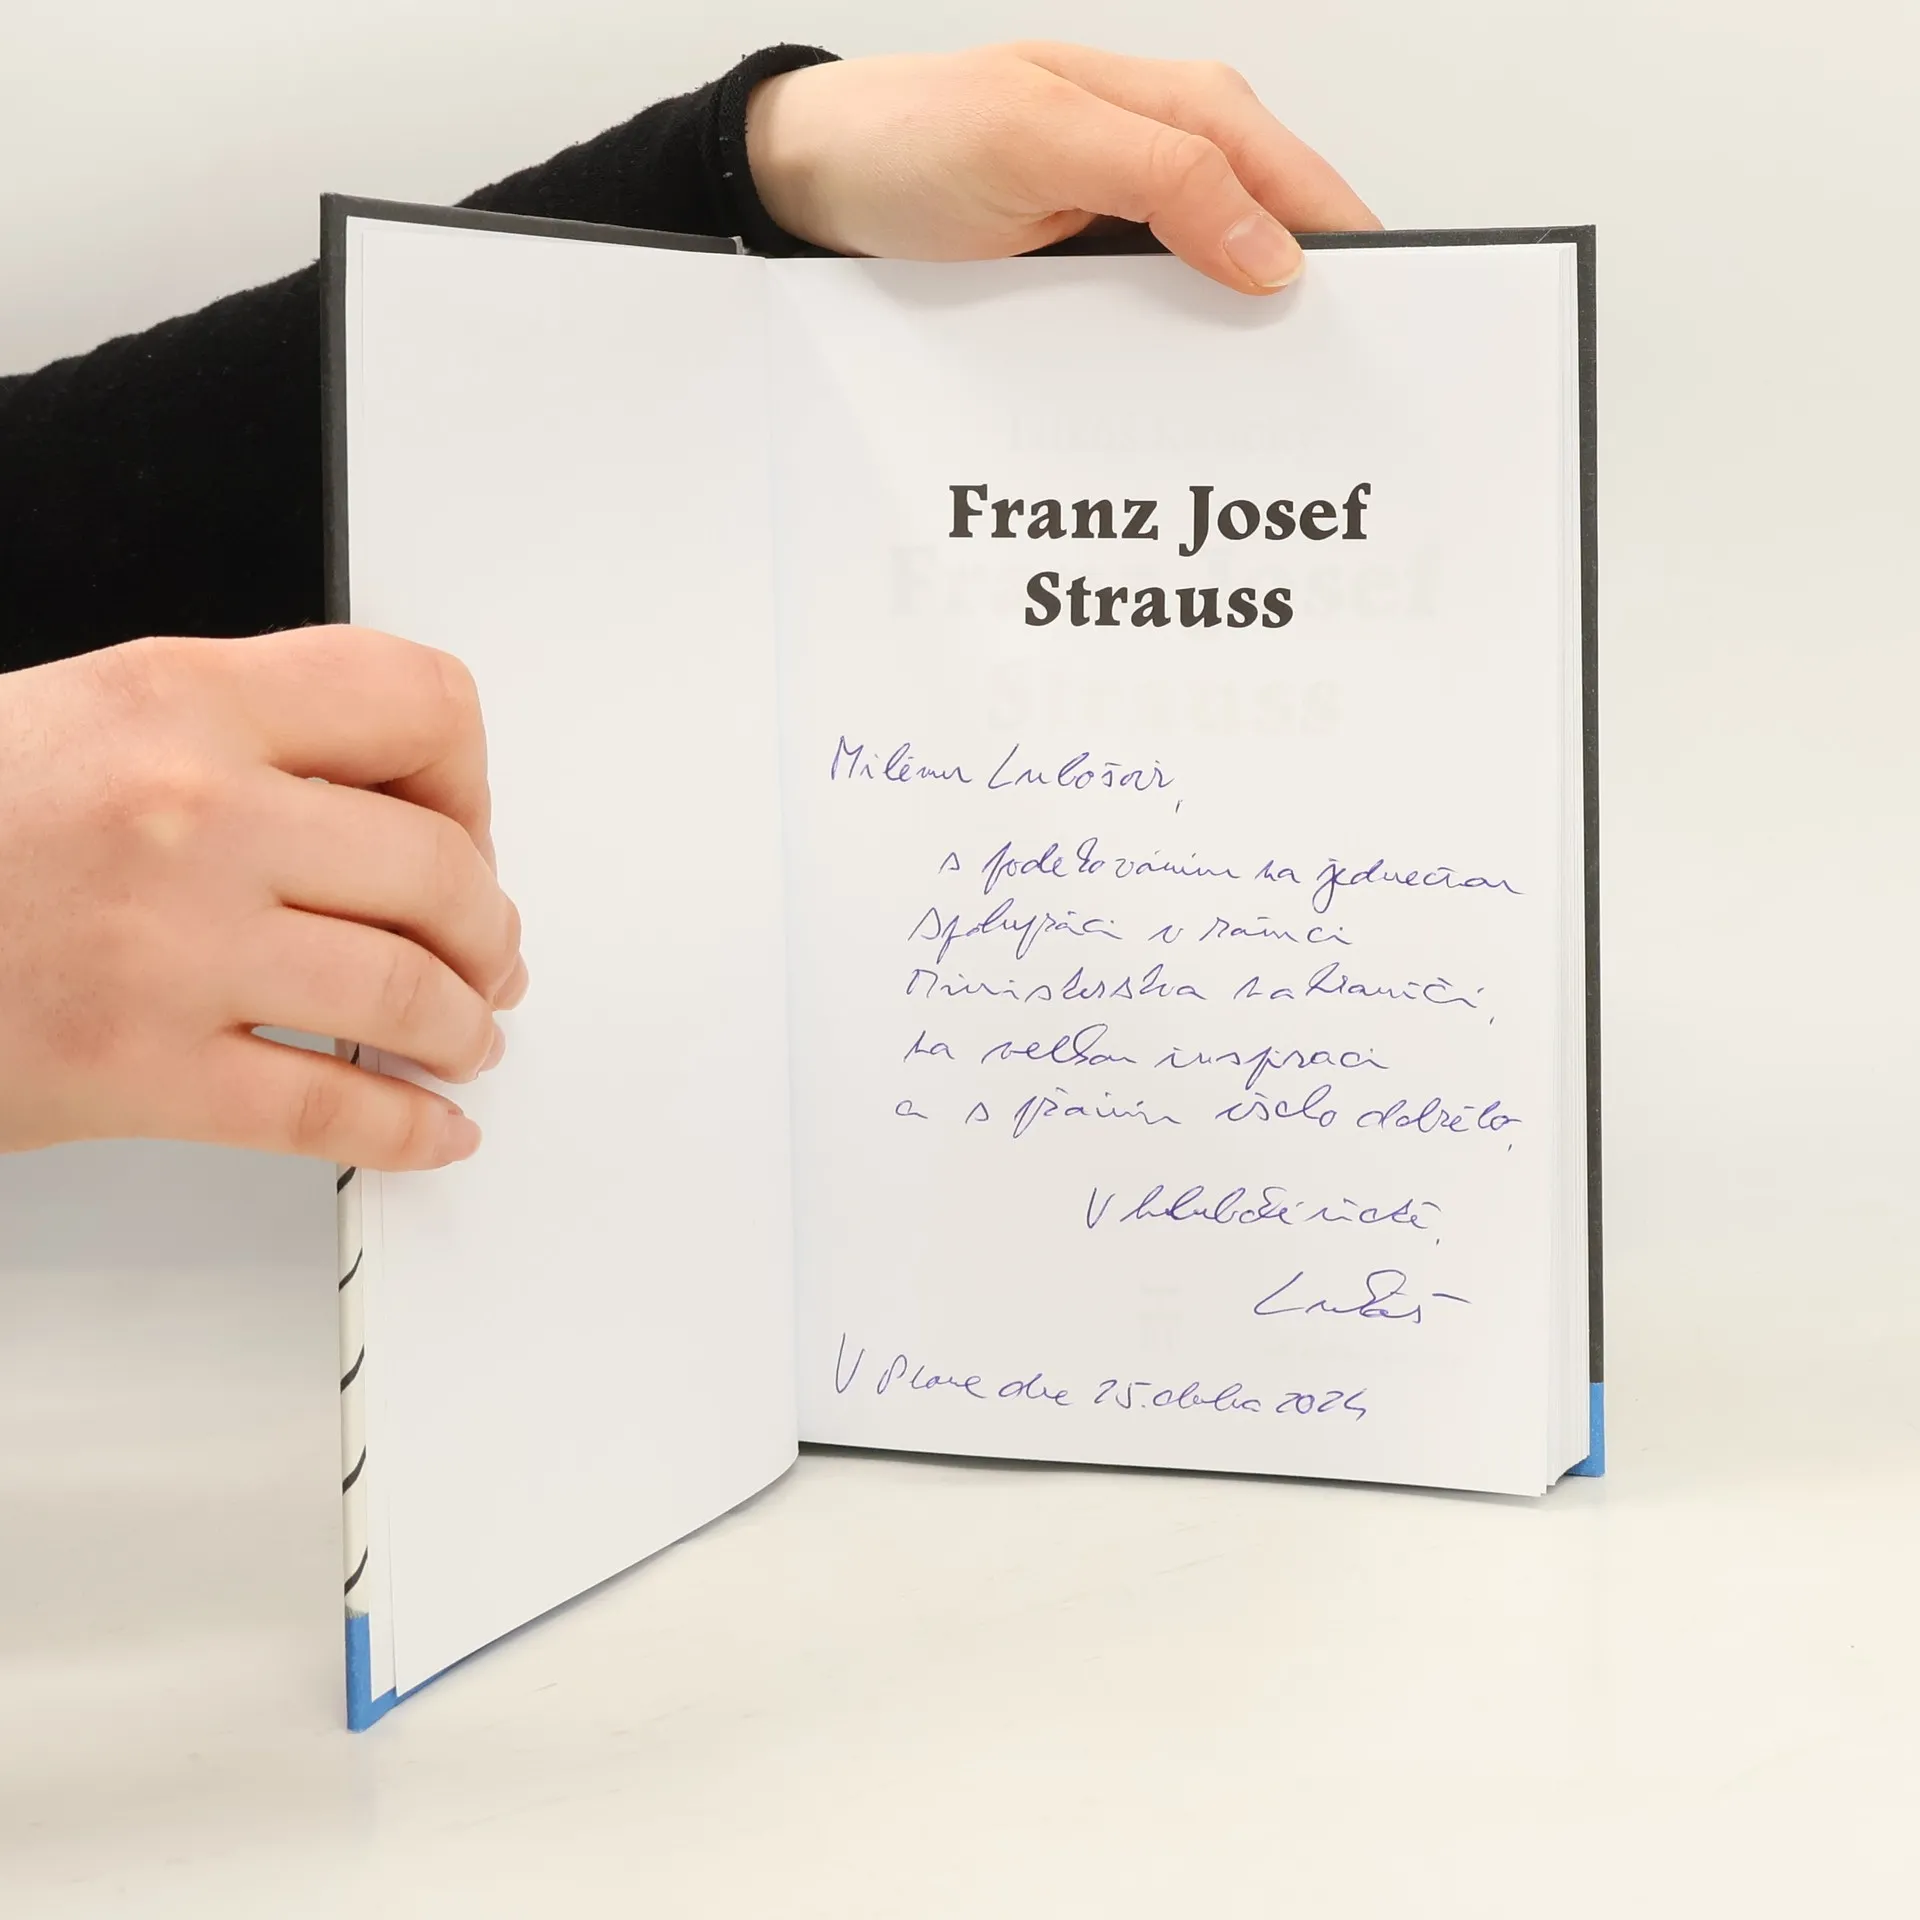 Franz Josef
Strauss
Milému Lubošovi,
s poděkováním za jedinečnou
spolupráci v rámci
Ministerstva zahraničí,
za velkou inspiraci
a s přáním všeho dobrého,
V hluboké úctě,
Lukáš
V Praze dne 25. dubna 2024